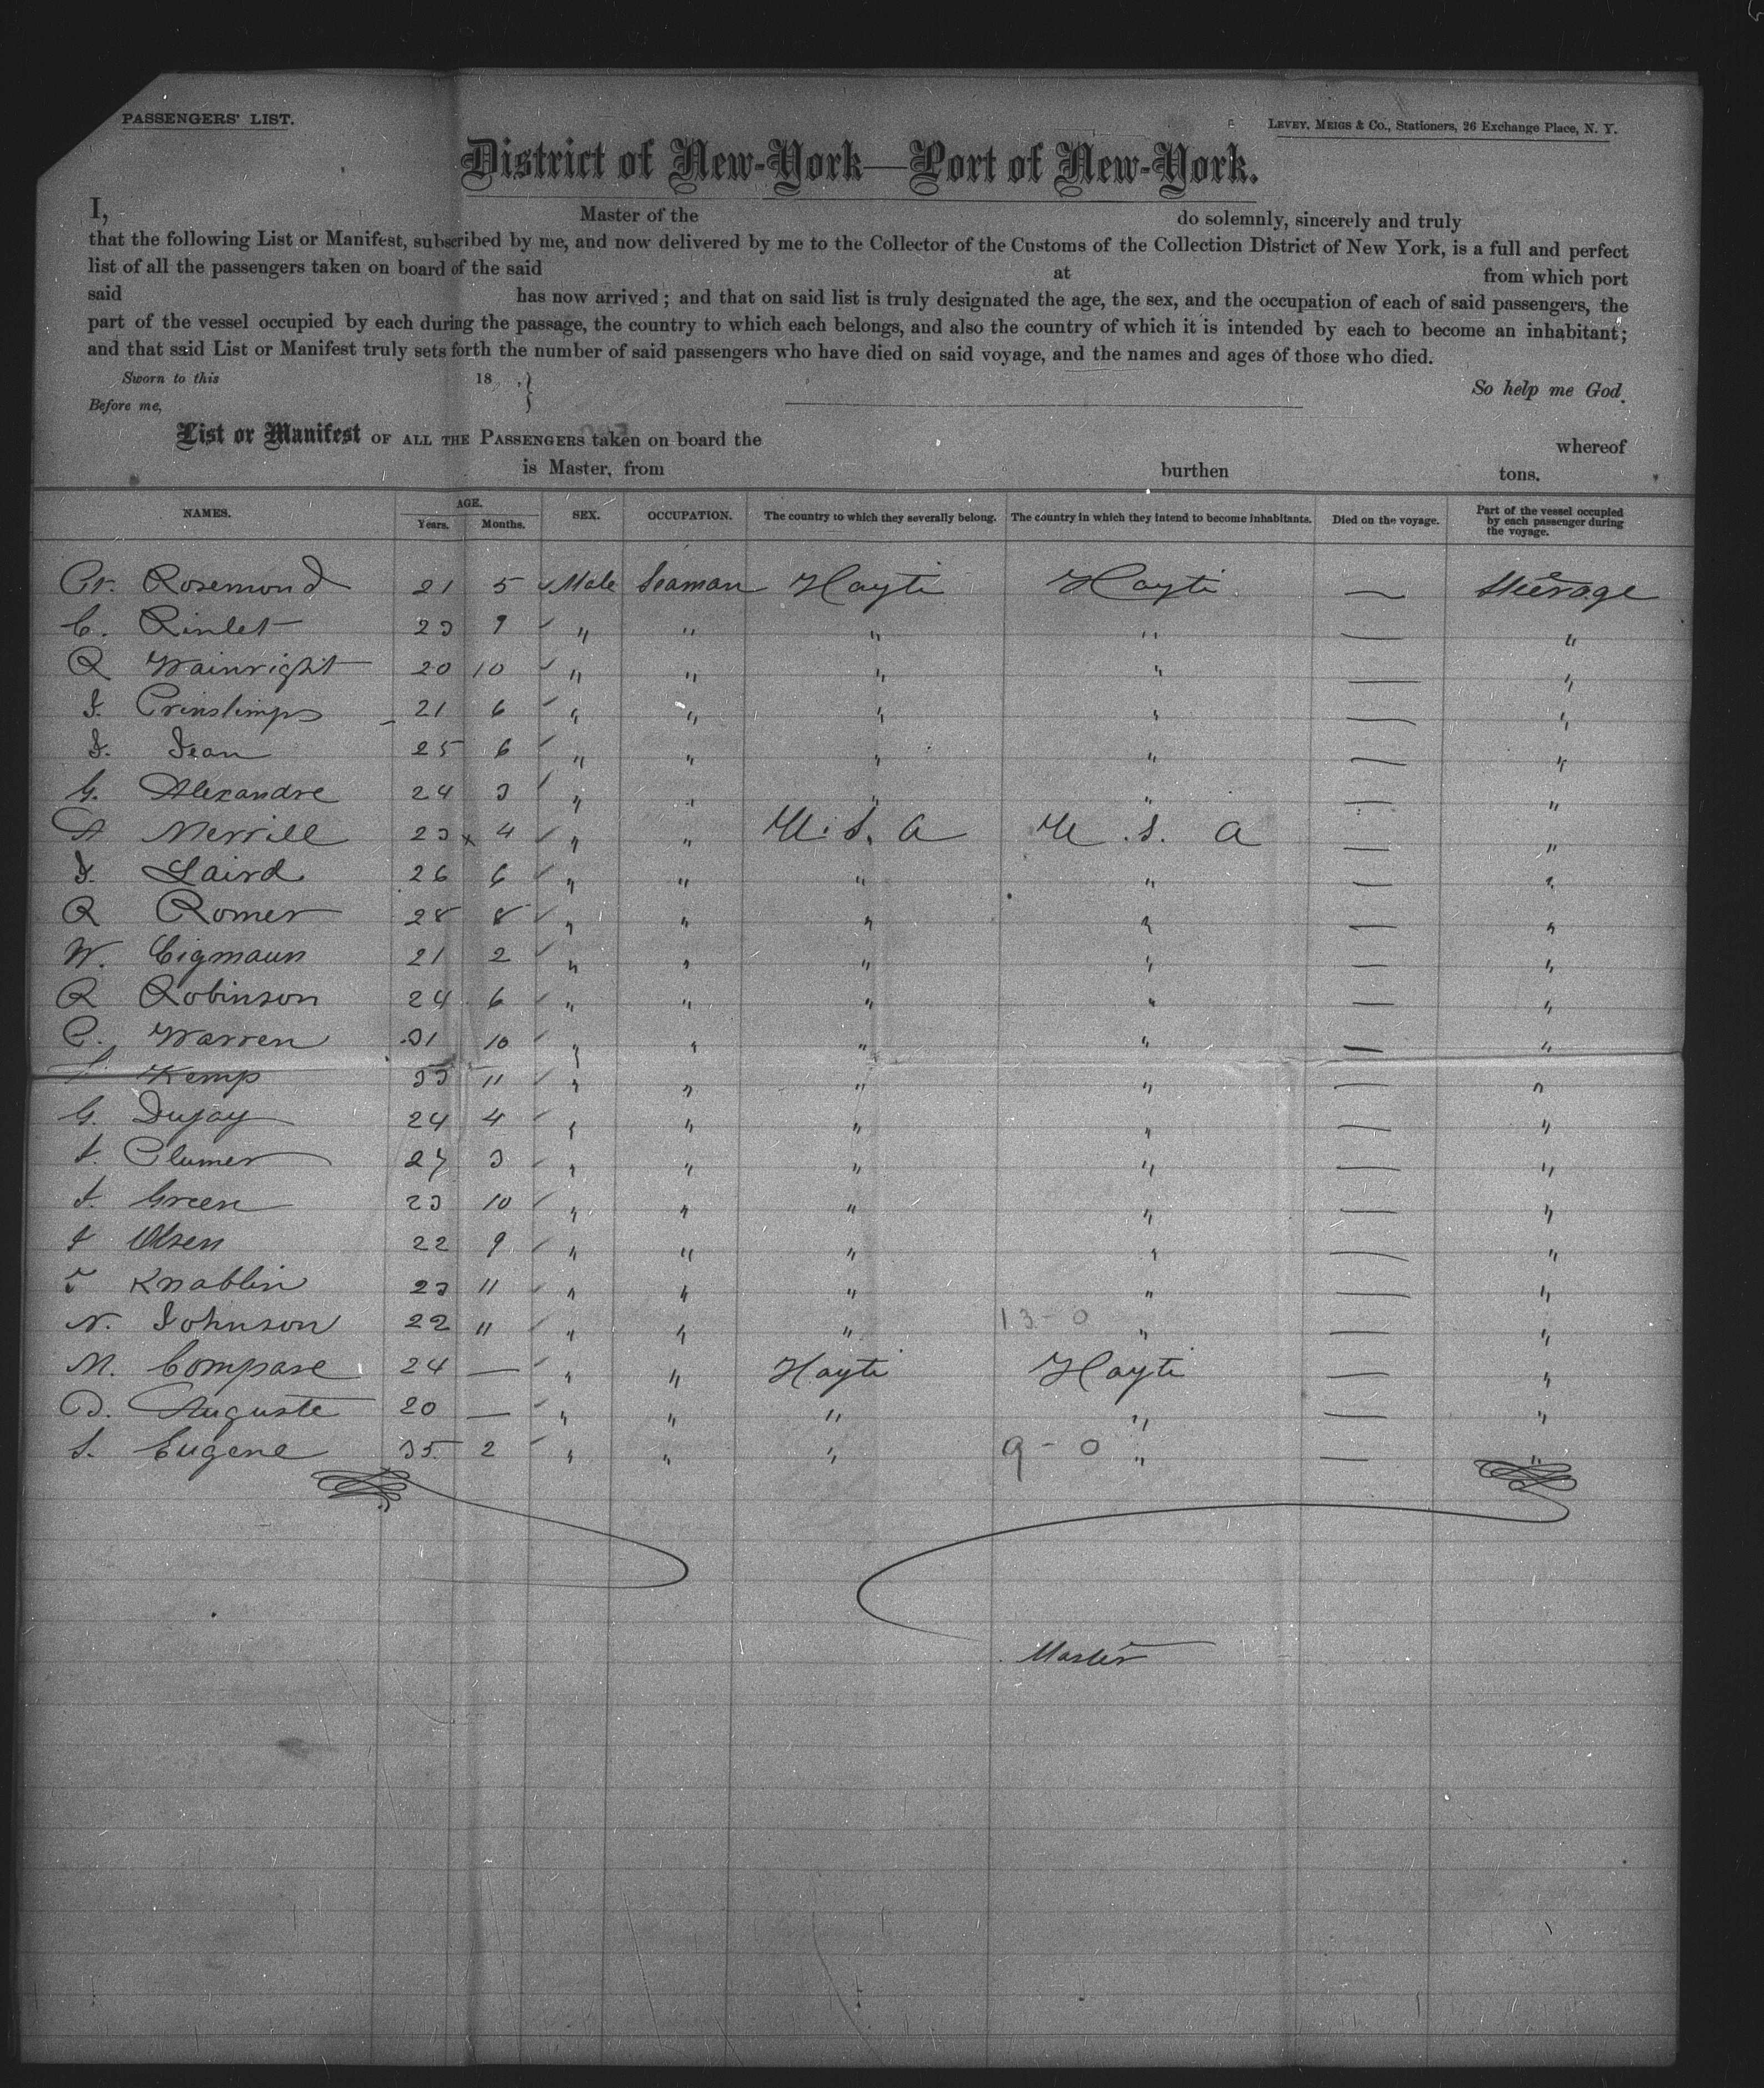 PASSENGERS' LIST.
LEVEY, MEIGS & CO., Stationers, 26 Exchange Place, N. Y.
District of New-York—Port of New-York.
I, Master of the do solemnly, sincerely and truly
that the following List or Manifest, subscribed by me, and now delivered by me to the Collector of the Customs of the Collection District of New York, is a full and perfect
list of all the passengers taken on board of the said at from which port
said has now arrived; and that on said list is truly designated the age, the sex, and the occupation of each of said passengers, the
part of the vessel occupied by each during the passage, the country to which each belongs, and also the country of which it is intended by each to become an inhabitant;
and that said List or Manifest truly sets forth the number of said passengers who have died on said voyage, and the names and ages of those who died.
Sworn to this 18 , } So help me God.
Before me,
List or Manifest OF ALL THE PASSENGERS taken on board the whereof
is Master, from burthen tons.
NAMES. AGE. Years. Months. SEX. OCCUPATION. The country to which they severally belong. The country in which they intend to become inhabitants. Died on the voyage. Part of the vessel occupied by each passenger during the voyage.
Rosemond 21 5 Male Seaman Hayti Hayti — Steerage
C. Rinlet 23 9 " " " " — "
R Wainright 20 10 " " " " — "
21 6 " " " " — "
J. Jean 25 6 " " " " — "
G. Alexandre 24 3 " " " " — "
A Merrill 23 x 4 " " U. S. A U. S. A — "
J. Laird 26 6 " " " " — "
R Romer 28 8 " " " " — "
W. Cigmaun 21 2 " " " " — "
R Robinson 24 6 " " " " — "
P. Warren 31 10 " " " " — "
Kemp 33 11 " " " " — "
G. Dujay 24 4 " " " " — "
Clumer 27 3 " " " " — "
Green 23 10 " " " " — "
Olsen 22 9 " " " " — "
Knablin 23 11 " " " " — "
N. Johnson 22 " " " " 13-0 " — "
M. Compare 24 — " " Hayti Hayti — "
D. Auguste 20 — " " " " — "
S. Eugene 35 2 " " " 9-0 " — "
Master